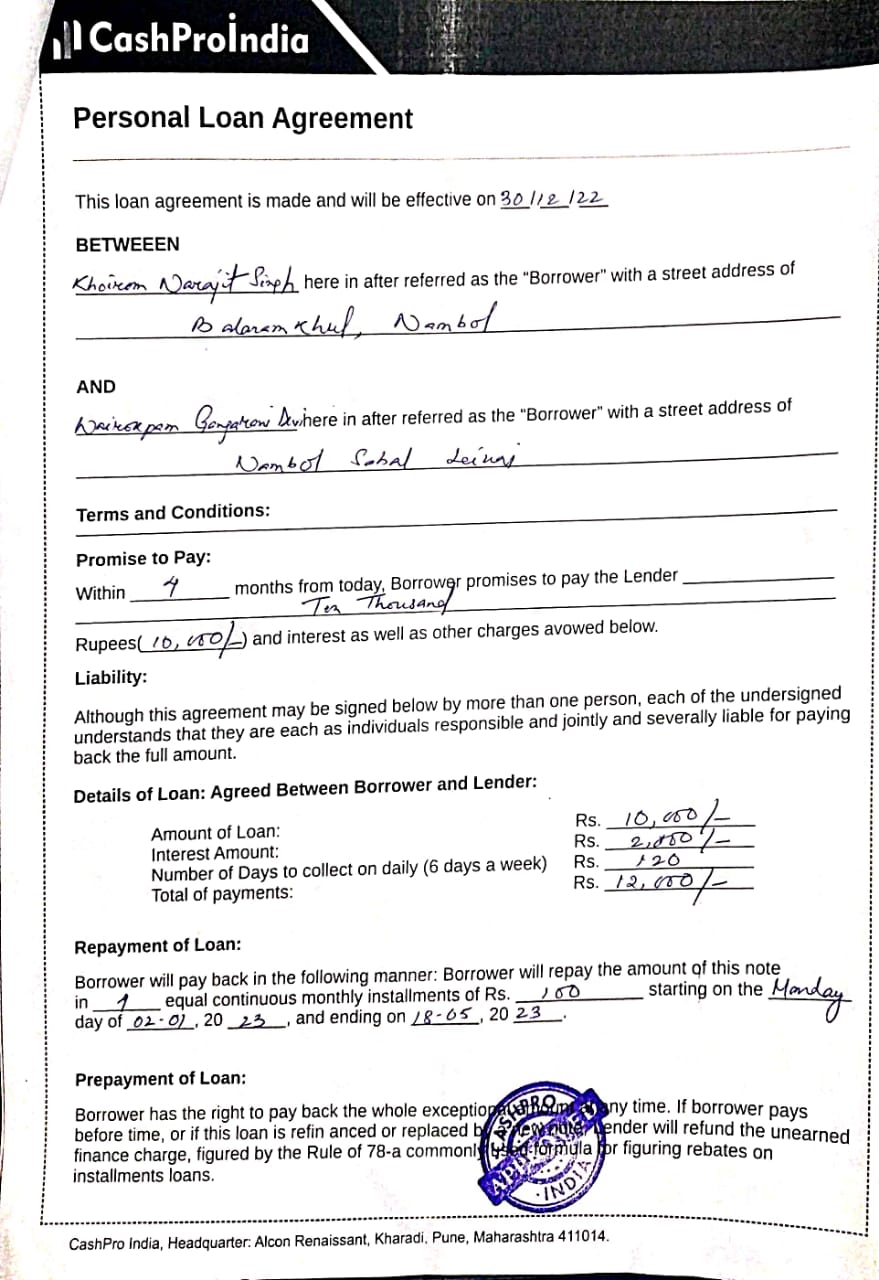 CashProIndia
Personal Loan Agreement
This loan agreement is made and will be effective on 30/12/22
BETWEEEN
Khoirom Narajit Singh here in after referred as the “Borrower” with a street address of
Balaram Khul, Nambol
AND
Wairokpam Devi here in after referred as the “Borrower” with a street address of
Nambol Sabal Leikai
Terms and Conditions:
Promise to Pay:
Within 4 months from today, Borrower promises to pay the Lender
Ten Thousand
Rupees( 10,000/- ) and interest as well as other charges avowed below.
Liability:
Although this agreement may be signed below by more than one person, each of the undersigned
understands that they are each as individuals responsible and jointly and severally liable for paying
back the full amount.
Details of Loan: Agreed Between Borrower and Lender:
Amount of Loan: Rs. 10,000/-
Interest Amount: Rs. 2,000/-
Number of Days to collect on daily (6 days a week) Rs. 120
Total of payments: Rs. 12,000/-
Repayment of Loan:
Borrower will pay back in the following manner: Borrower will repay the amount of this note
in equal continuous monthly installments of Rs. 100 starting on the Monday
day of 02-01, 20 23, and ending on 18-05, 20 23.
Prepayment of Loan:
Borrower has the right to pay back the whole exceptional amount at any time. If borrower pays
before time, or if this loan is refin anced or replaced by a new note, Lender will refund the unearned
finance charge, figured by the Rule of 78-a commonly used formula for figuring rebates on
installments loans.
CASHPRO
INDIA
CashPro India, Headquarter: Alcon Renaissant, Kharadi, Pune, Maharashtra 411014.